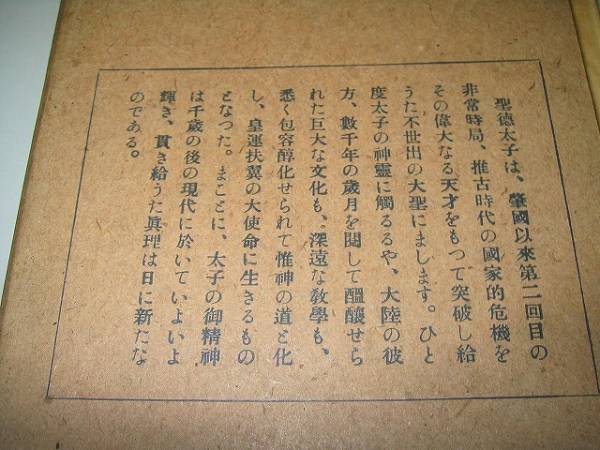 聖德太子は、肇國以來第二回目の
非常時局、推古時代の國家的危機を
その偉大なる天才をもつて突破し給
うた不世出の大聖にまします。ひと
度太子の神靈に觸るるや、大陸の彼
方、數千年の歲月を閲して醞釀せら
れた巨大な文化も、深遠な敎學も、
悉く包容醇化せられて惟神の道と化
し、皇運扶翼の大使命に生きるもの
となつた。まことに、太子の御精神
は千歲の後の現代に於いていよいよ
輝き、貫き給うた眞理は日に新たな
のである。